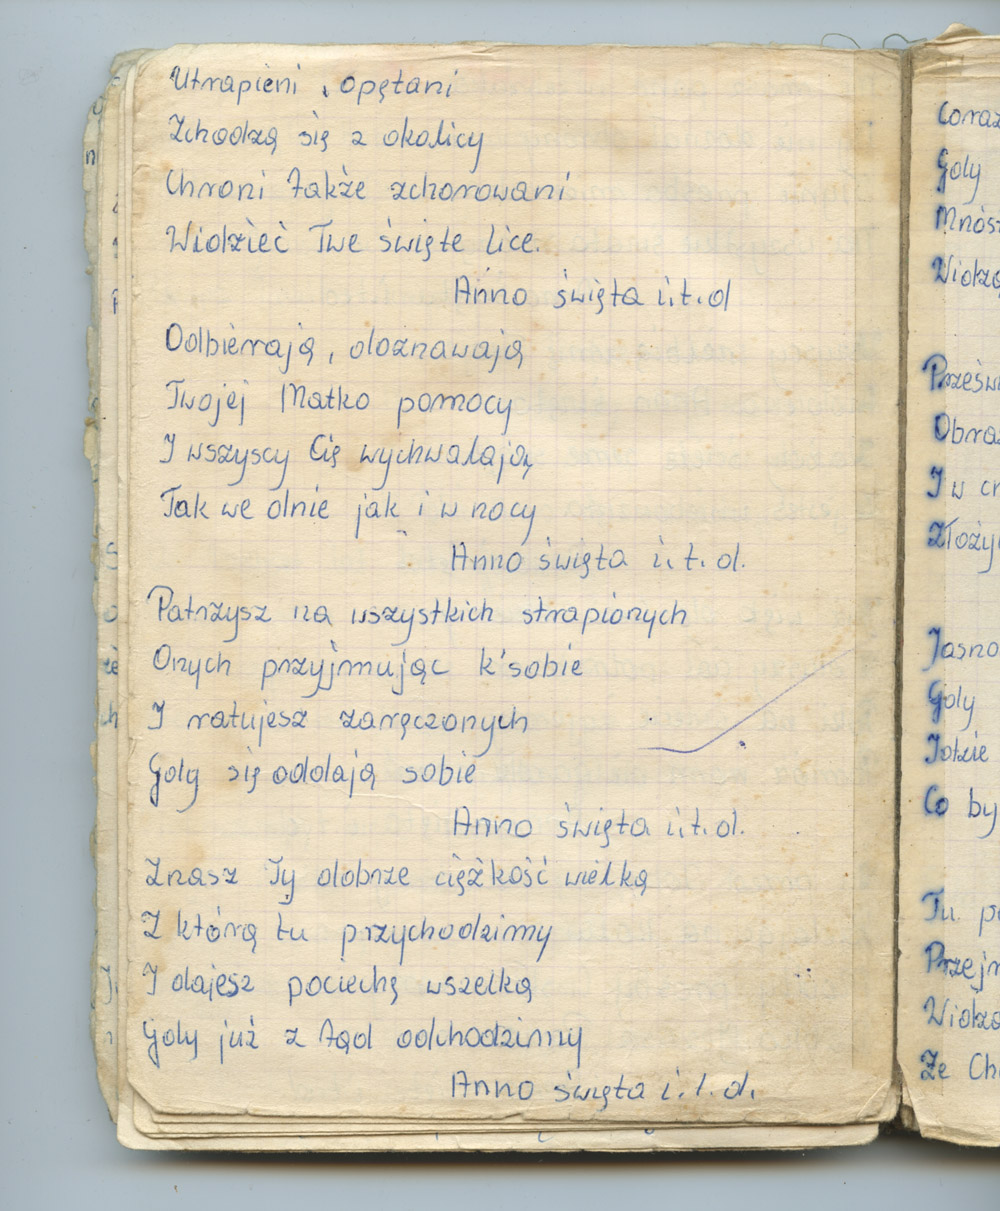 Utrapieni, opętani
Zchodzą się z okolicy
Chroni także zchorowani
Widzieć Twe święte lice.
Anno święta i.t.d
Odbierają, doznawają
Twojej Matko pomocy
I wszyscy Cię wychwalają
Tak we dnie jak i w nocy
Anno święta i.t.d.
Patrzysz na wszystkich strapionych
Onych przyjmując k'sobie
I ratujesz zaręczonych
Gdy się oddają sobie
Anno święta i.t.d.
Znasz Ty dobrze ciężkość wielką
Z którą tu przychodzimy
I dajesz pociechę wszelką
Gdy już z tąd odchodzimy
Anno święta i.t.d.
Gdy
I w
Gdy
Idzie
Co by
Tu
Że